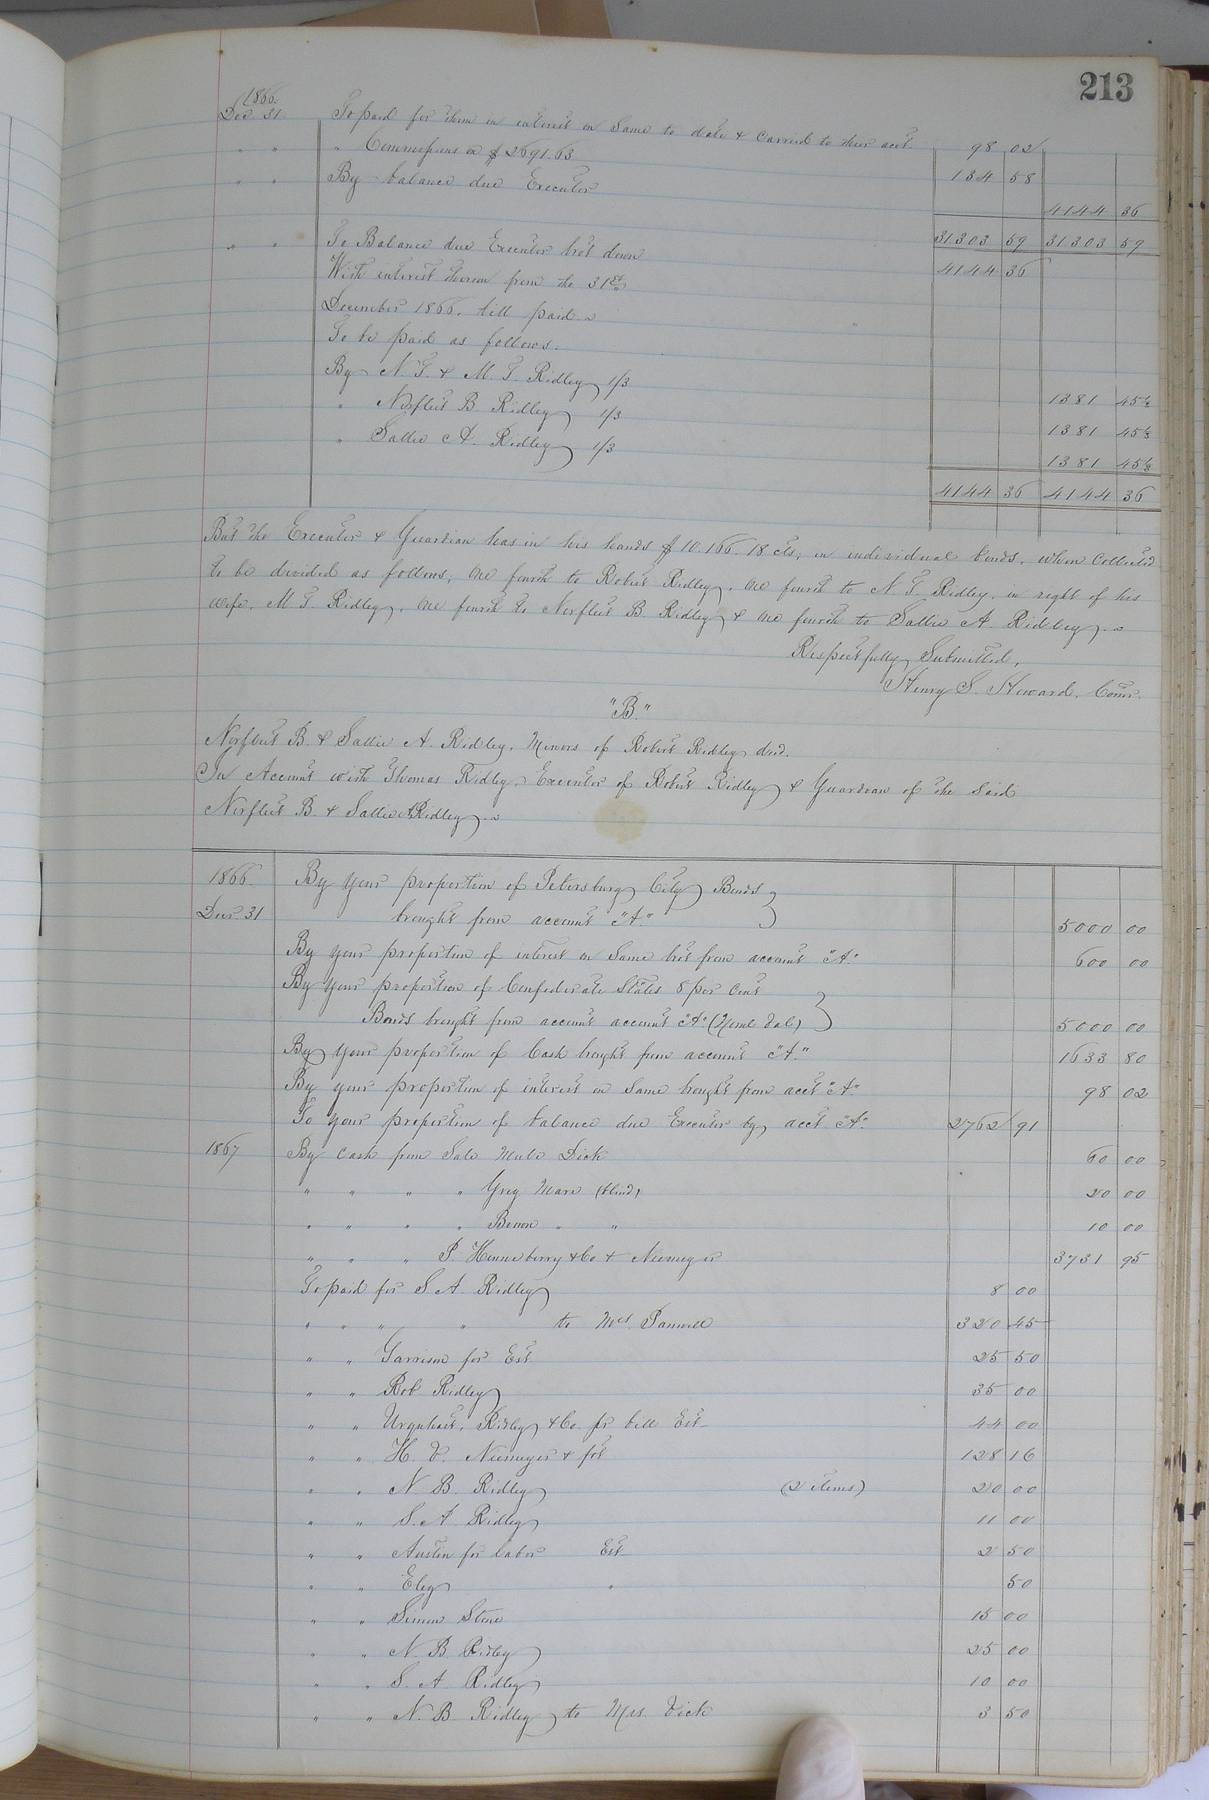 213
1866.
Decr 31. To paid for them in interest on Same to date & Carried to their acct 98 02
" " " Commissions on $2691.63 134 58
" " By balance due Executor 4144 36
31303 59 31303 59
" " To Balance due Executor brot down 4144 36
With interest thereon from the 31st
December 1866. till paid.
To be paid as follows.
By N. T. & M. T. Ridley 1/3 1381 45 1/3
" Norfleet B. Ridley 1/3 1381 45 1/3
" Sallie A. Ridley 1/3 1381 45 1/3
4144 36 4144 36
But the Executor & Guardian has in his hands $10.166.18 cts, in individual bonds, when Collected
to be divided as follows, one fourth to Robert Ridley, one fourth to N. T. Ridley, in right of his
wife, M. T. Ridley, one fourth to Norfleet B. Ridley & one fourth to Sallie A. Ridley.
Respectfully Submitted,
Henry S. Howard. Comr.
"B."
Norfleet B. & Sallie A. Ridley, Minors of Robert Ridley decd.
In Account with Thomas Ridley, Executor of Robert Ridley & Guardian of the Said
Norfleet B. & Sallie A Ridley.
1866. By your proportion of Petersburg City Bonds
Decr 31 brought from account "A." 5000 00
By your proportion of interest on Same brot from account "A." 600 00
By your proportion of Confederate States 8 per Cent
Bonds brought from account account "A." (Noml Val) 5000 00
By your proportion of Cash brought from account "A." 1633 80
By your proportion of interest on Same brought from acct "A." 98 02
To your proportion of balance due Executor by acct "A." 2762 91
1867 By Cash from Sale Mule Dick 60 00
" " " " Grey Mare (blind) 20 00
" " " " Brown " " 10 00
" " " P. Henneberry & Co & Niemeyer 3731 95
To paid for S. A. Ridley 8 00
" " " " to Mrs. Pannill 320 45
" " Garrison for Est 25 50
" " Rob Ridley 35 00
" " Urquhart, Ridley & Co for bill Est 44 00
" " H. V. Niemeyer & for 128 16
" " N B. Ridley (2 items) 20 00
" " S. A Ridley 11 00
" " Austin for labor Est 2 50
" " Eley " 50
" " Simon Stone 15 00
" " N. B. Ridley 25 00
" " S. A. Ridley 10 00
" " N. B. Ridley to Mrs. Vick 3 50